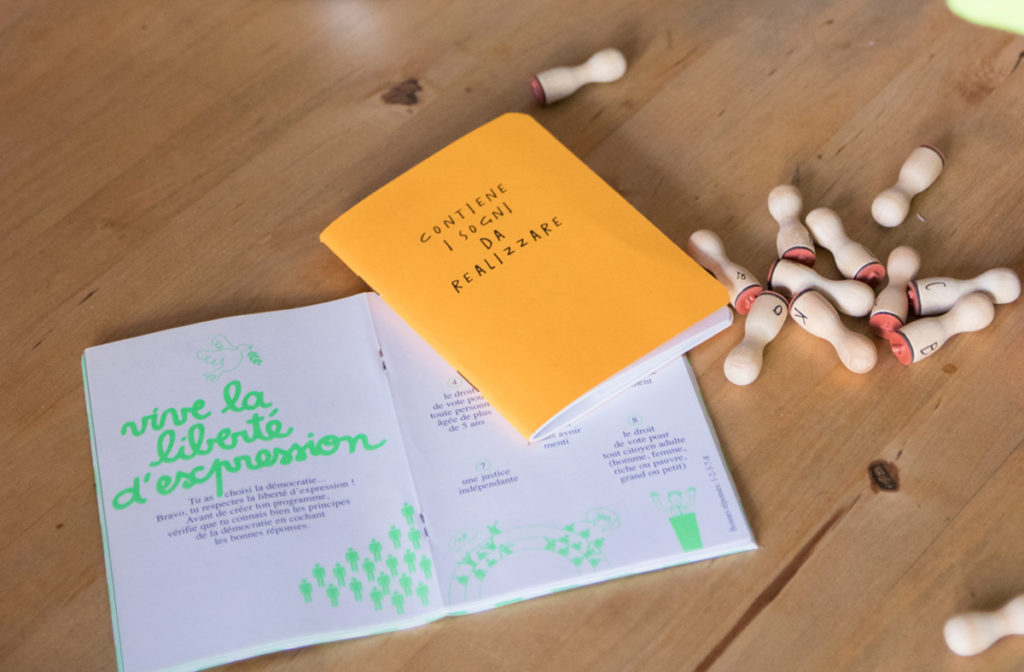 CONTIENE
I SOGNI
DA
REALIZZARE
vive la
liberté
d'expression
Tu as choisi la démocratie...
Bravo, tu respectes la liberté d'expression !
Avant de créer ton programme,
vérifie que tu connais bien les principes
de la démocratie en cochant
les bonnes réponses.
4
le droit
de vote pour
toute personne
âgée de plus
de 5 ans
avoir
menti
7
une justice
indépendante
8
le droit
de vote pour
tout citoyen adulte
(homme, femme,
riche ou pauvre,
grand ou petit)
R
Q
K
C
B